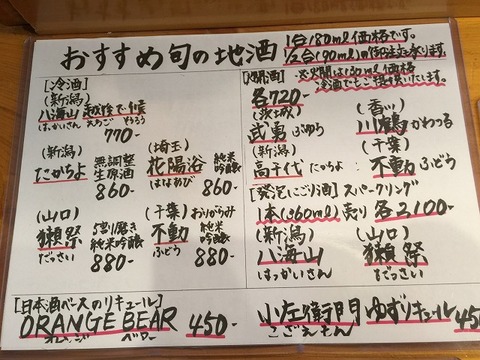 おすすめ旬の地酒
1合180ml価格です。
1/2合(90ml)の御注文承ります。
[冷酒]
(新潟)
八海山 越後で候
はっかいさん えちご そうろう
770-
(新潟)
たかちよ 無調整
生原酒
860-
(埼玉)
花陽浴 純米
吟醸
はなあび 860-
(山口)
獺祭 5割磨き
純米吟醸
だっさい 880-
(千葉) おりがらみ
不動 純米
吟醸
ふどう 880-
[燗酒] ※燗は130ml価格
冷酒でもご提供いたします。
各720-
(茨城)
武勇 ぶゆう
(香川)
川鶴 かわつる
(新潟)
高千代 たかちよ
(千葉)
不動 ふどう
[発泡にごり酒] スパークリング
1本(360ml)売り 各2100-
(新潟)
八海山
はっかいさん
(山口)
獺祭
だっさい
[日本酒ベースのリキュール]
ORANGE BEAR 450-
オレンジ ベアー
小左衛門 ゆずリキュール 450
こざえもん